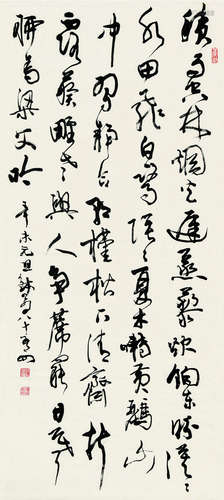 積雨空林烟火遲蒸藜炊黍餉東菑漠々
水田飛白鷺陰々夏木囀黃鸝山
中習靜朝槿松下清齋折
露葵野老與人爭席罷日暮
聊為梁父吟
辛未元旦八十